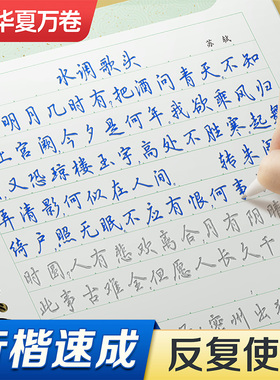 华夏万卷
苏轼
水调歌头
明月几时有,把酒问青天不知
上宫阙,今夕是何年我欲乘风归
又恐琼楼玉宇高处不胜寒起舞
弄清影何似在人间 转朱阁
绮户,照无眠不应有恨何事
时圆,人有悲欢离合月有阴晴
此事古难全但愿人长久千
密州出
行楷速成
反复使